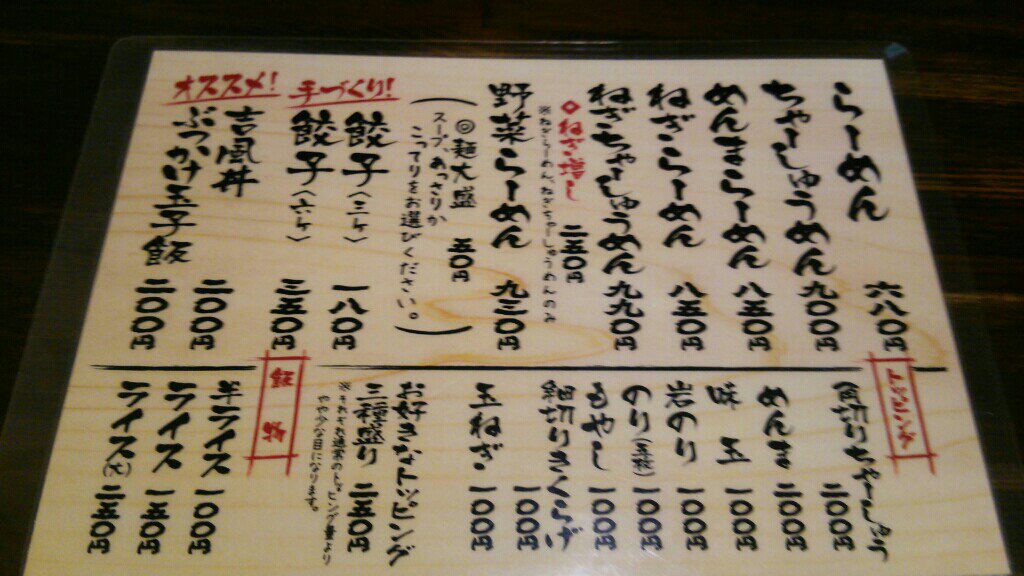 らーめん 六八〇円
ちゃーしゅうめん 九〇〇円
めんまらーめん 八五〇円
ねぎらーめん 八五〇円
ねぎちゃーしゅうめん 九九〇円
ねぎ増し 二五〇円
※ねぎらーめん、ねぎちゃーしゅうめんのみ
野菜らーめん 九三〇円
◎麺大盛 五〇円
スープ、あっさりか
こってりをお選びください。
手づくり!
餃子(三ヶ) 一八〇円
餃子(六ヶ) 三五〇円
オススメ!
吉風丼 二〇〇円
ぶっかけ玉子飯 二〇〇円
トッピング
角切りちゃーしゅう 二〇〇円
めんま 二〇〇円
味玉 一〇〇円
岩のり 一〇〇円
のり(五枚) 一〇〇円
もやし 一〇〇円
細切りきくらげ 一〇〇円
玉ねぎ 一〇〇円
お好きなトッピング
三種盛り 二五〇円
※それぞれ通常のトッピング量より
やや少な目になります。
飯物
半ライス 一〇〇円
ライス 一五〇円
ライス(大) 二五〇円